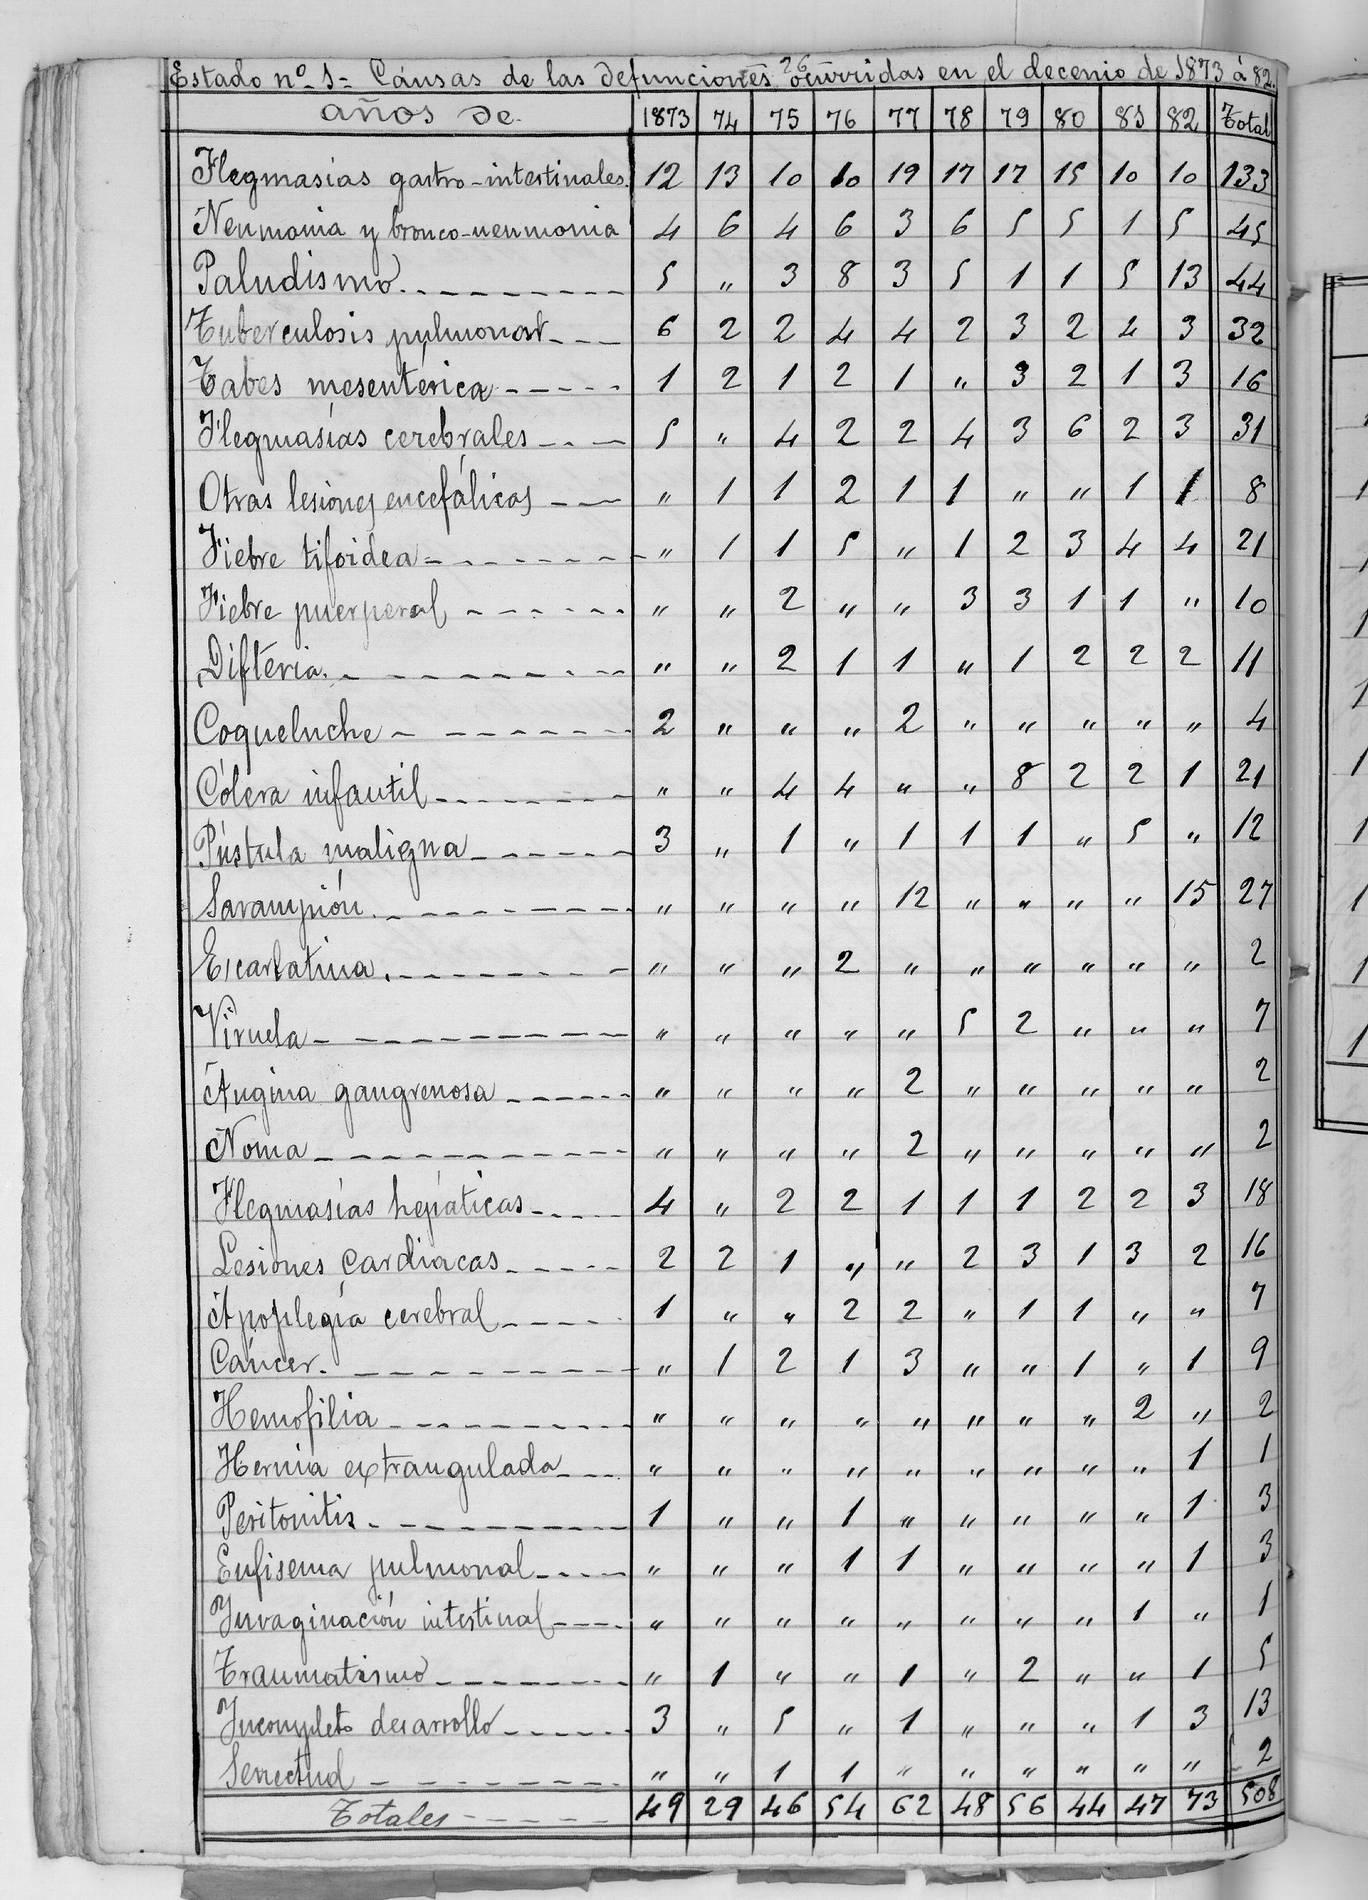 26
Estado nº 1= Cáusas de las defunciones ocurridas en el decenio de 1873 á 82.
años de. 1873 74 75 76 77 78 79 80 81 82 Total
Flegmasías gastro-intestinales. 12 13 10 10 19 17 17 15 10 10 133
Neumonia y bronco-neumonia 4 6 4 6 3 6 5 5 1 5 45
Paludismo. 5 " 3 8 3 5 1 1 5 13 44
Tuberculosis pulmonar 6 2 2 4 4 2 3 2 4 3 32
Tabes mesentérica 1 2 1 2 1 " 3 2 1 3 16
Flegmasías cerebrales 5 " 4 2 2 4 3 6 2 3 31
Otras lesiones encefálicas " 1 1 2 1 1 " " 1 1 8
Fiebre tifoidea " 1 1 5 " 1 2 3 4 4 21
Fiebre puerperal " " 2 " " 3 3 1 1 " 10
Difteria. " " 2 1 1 " 1 2 2 2 11
Coqueluche 2 " " " 2 " " " " " 4
Cólera infantil " " 4 4 " " 8 2 2 1 21
Pústula maligna 3 " 1 " 1 1 1 " 5 " 12
Sarampión. " " " " 12 " " " " 15 27
Escarlatina. " " " 2 " " " " " " 2
Viruela " " " " " 5 2 " " " 7
Angina gangrenosa " " " " 2 " " " " " 2
Noma " " " " 2 " " " " " 2
Flegmasías hepáticas 4 " 2 2 1 1 1 2 2 3 18
Lesiones cardiacas 2 2 1 " " 2 3 1 3 2 16
Apoplegía cerebral 1 " " 2 2 " 1 1 " " 7
Cáncer. " 1 2 1 3 " " 1 " 1 9
Hemofilia " " " " " " " " 2 " 2
Hernia extrangulada " " " " " " " " " 1 1
Peritonitis 1 " " 1 " " " " " 1 3
Enfisema pulmonal " " " 1 1 " " " " 1 3
Invaginación intestinal " " " " " " " " 1 " 1
Traumatismo " 1 " " 1 " 2 " " 1 5
Incompleto desarrollo 3 " 5 " 1 " " " 1 3 13
Senectud " " 1 1 " " " " " " 2
Totales 49 29 46 54 62 48 56 44 47 73 508